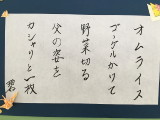 オムライス
ゴーグルかりて
野菜切る
父の姿を
カシャリと一枚